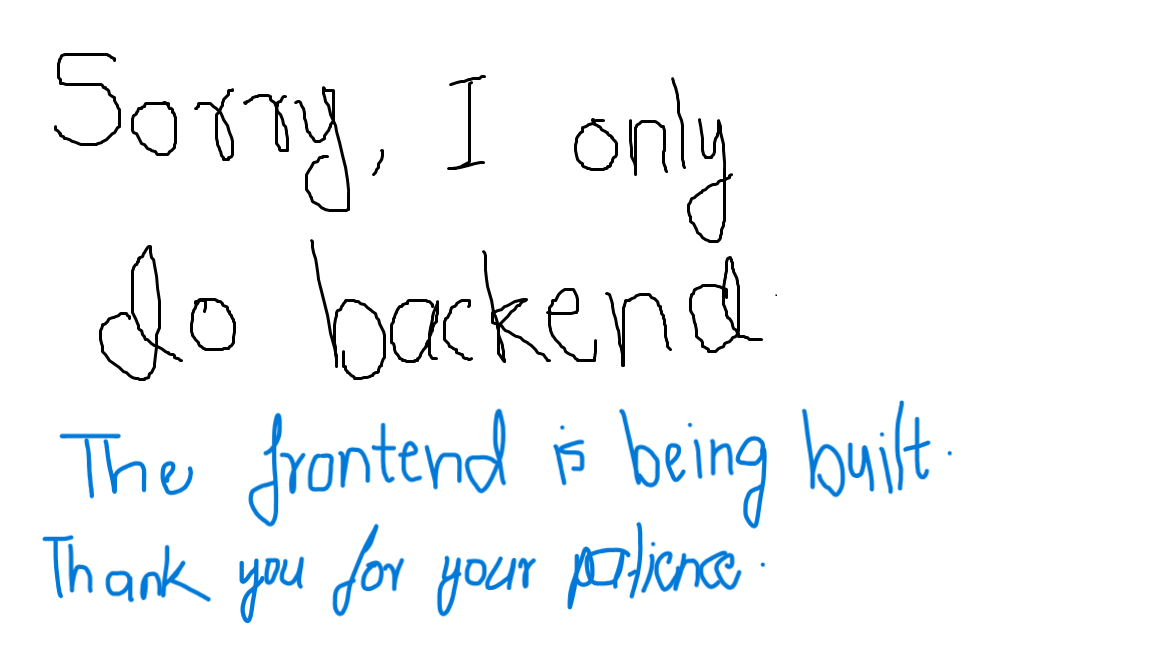 Sorry, I only
do backend.
The frontend is being built.
Thank you for your patience.